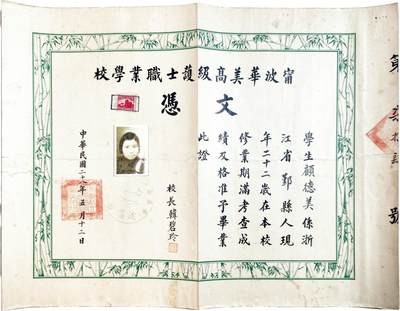 甯波華美高級護士職業學校
文憑
學生顧德美係浙
江省鄞縣人現
年二十二歲在本校
修業期滿考查成
績及格准予畢業
此證
校長韓碧玲
中華民國二十八年五月十二日
第
號